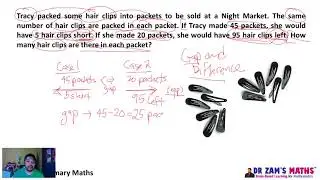 Tracy packed some hair clips into packets to be sold at a Night Market. The same
number of hair clips are packed in each packet. If Tracy made 45 packets, she would
have 5 hair clips short. If she made 20 packets, she would have 95 hair clips left. How
many hair clips are there in each packet?
Case 1
Case 2
Gap and
Difference
45 packets
20 packets
(gap)
5 short
95 left
gap → 45-20=25 pac
DR ZAM'S MATHS
mary Maths